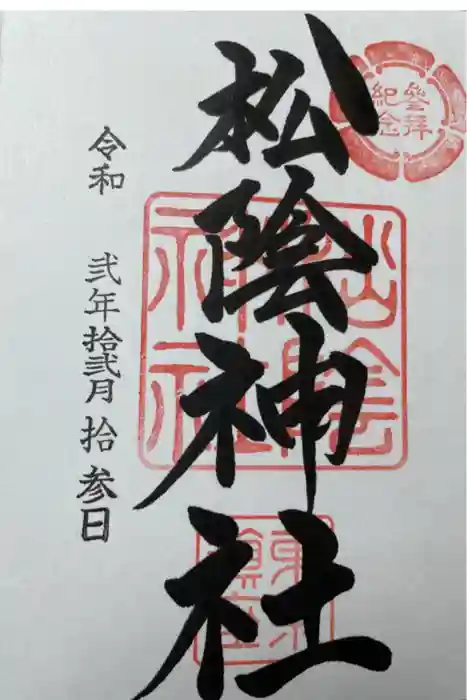 參拜
紀念
松陰神社
松陰
神社
東京
鎮座
令和 弐年拾弐月拾参日